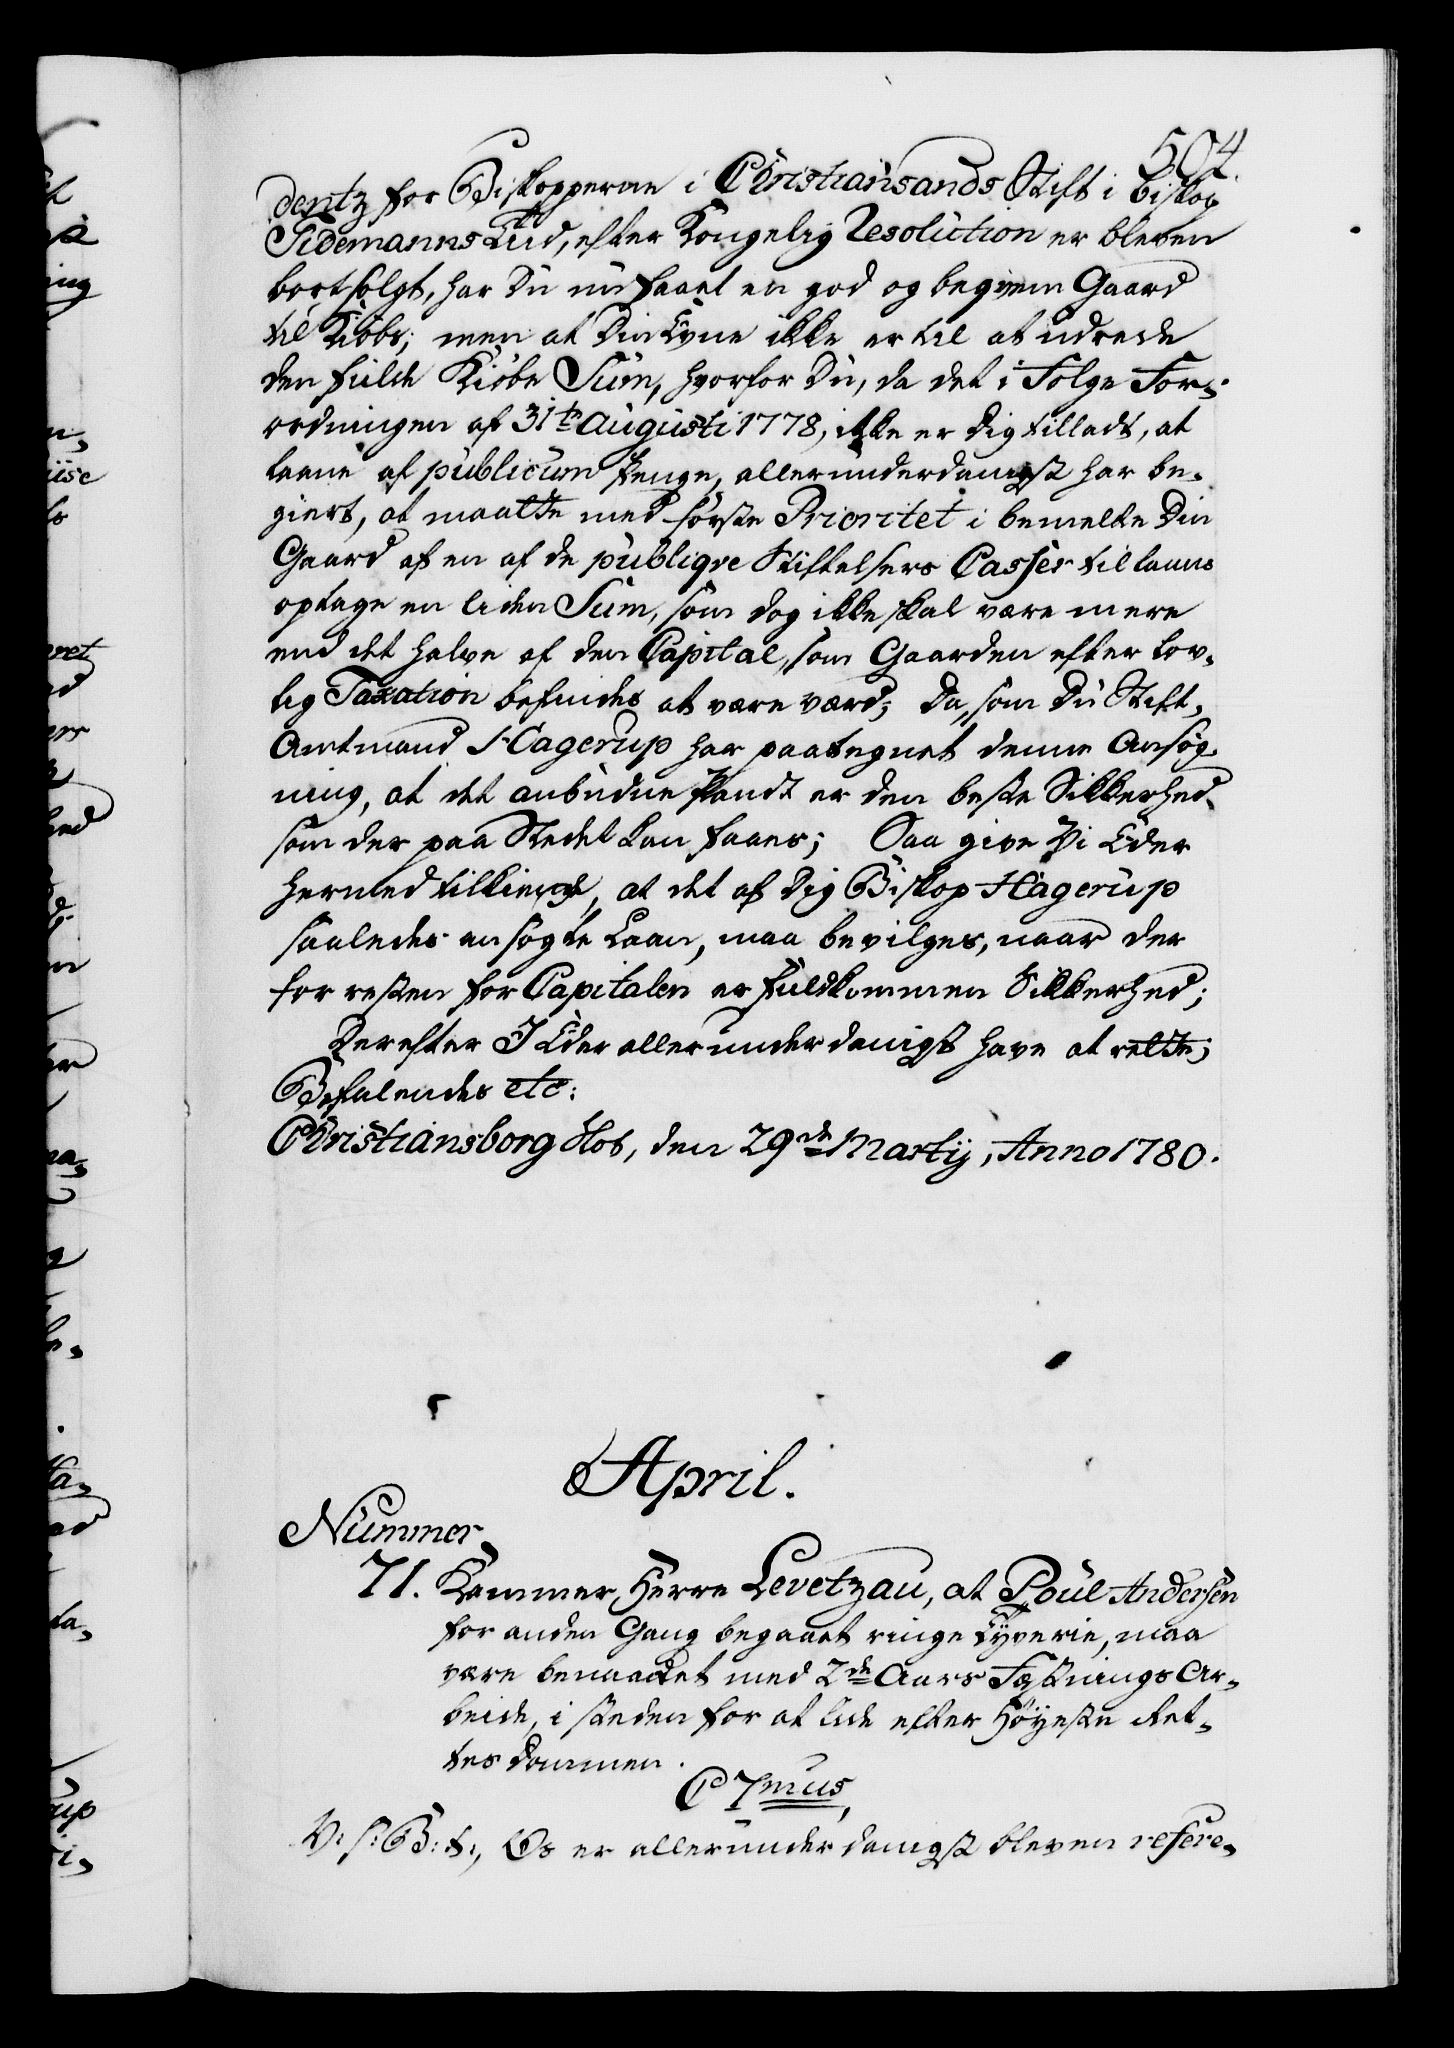 504.
dentz for Biskopperne i Christiansands Stift i Biskop
Tidemanns Tid, efter Kongelig Resolution er bleven
bortsolgt, har Du nu faaet en god og beqvem Gaard
til Kiøbs; men at Din Evne ikke er til at udrede
den fulde Kiøbe Sum, hvorfor Du, da det i Følge For-
ordningen af 31te Augusti 1778, ikke er Dig tilladt, at
laane af publicum Penge, allerunderdanigst har be-
giert, at maatte med første Prioritet i bemelte Din
Gaard af en af de publiqve Stiftelsers Casser til laans
optage en liden Sum, som dog ikke skal være mere
end det halve af den Capital, som Gaarden efter lov-
lig Taxation befindes at være værd; Da, som Du Stift-
Amtmand Hagerup har paategnet denne Ansøg-
ning, at det anbudne Pandt er den beste Sikkerhed,
som der paa Stedet kan faaes; Saa give Vi Eder
hermed tilkiende, at det af Dig Biskop Hagerup
saaledes ansøgte Laan, maa bevilges, naar der
for resten for Capitalen er fuldkommen Sikkerhed;
Derefter I Eder allerunderdanigst have at rette;
Befalendes etc:
Christiansborg Slot, den 29de Martij, Anno 1780.
April.
Nummer
71. Kammer Herre Levetzau, at Poul Andersen
for anden Gang begaaet ringe Tyverie, maa
være benaadet med 2de Aars Fæstnings Ar-
beide, i steden for at lide efter Høyeste Ret-
tes Dommen.
C 7mus,
V: S: G: T:, Os er allerunderdanigst bleven refere-